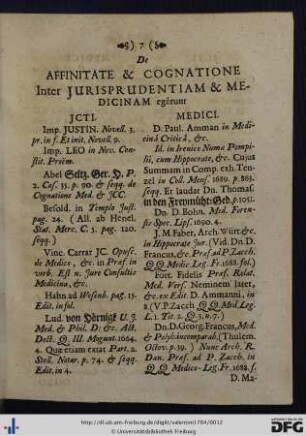 ❧) 7 (☙
De
AFFINITATE & COGNATIONE
Inter JURISPRUDENTIAM & ME-
DICINAM egêrunt
JCTI.
Imp. JUSTIN. Novell. 3.
pr. in f. Et init. Novell. 9.
Imp. LEO in Nov. Con-
stit. Proœm.
Abel Seltz. Ger. H. P.
2. Caf. 35. p. 90. & seqq. de
Cognatione Med. & JCC.
Besold. in Templo Just.
pag. 24. (All. ab Henel.
Stat. Merc. C. 5. pag. 120.
seqq.)
Vinc. Carrar JC. Opusc.
de Medico, &c. in Præf. in
verb. Est n. Jure Consultis
Medicina, &c.
Hahn ad Wesenb. pag. 15.
Edit. in fol.
Lud. von Hörnigk U. J.
Med. & Phil. D. &c. Alt.
Doct. Q. III. Mogunt. 1664.
4. Quæ etiam extat Part. 2.
Stell. Notar. p. 74. & seqq.
Edit. in 4.
MEDICI.
D. Paul. Amman in Medi-
cinâ Criticâ, &c.
Id. in Irenico Numæ Pompi-
lii, cum Hippocrate, &c. Cujus
Summam in Comp. exh. Ten-
zel in Coll. Mens. 1689. p. 865.
seqq. Et laudat Dn. Thomas.
in den Freymüht. Ged. p. 1051.
Dn. D. Bohn. Med. Foren-
sis Spec. Lips. 1690. 4.
J. M. Faber, Arch. Würt. &c.
in Hippocrate Jur. (Vid. Dn. D.
Francus, &c. Præf. ad P. Zacch.
Q. Q. Medic. Leg. Fr. 1688. fol.)
Fort. Fidelis Præf. Relat.
Med. Vers. Neminem latet,
&c. ex Edit. D. Ammanni, in
8. (V. P. Zacch Q. Q. Med. Leg.
L. 1. Tit. 2. Q. 3. n. 7.)
Dn. D. Georg. Francus, Med.
& Polyh. incomparab. (Thulem.
Octov. p. 39.) Nunc Arch. R.
Dan. Præf. ad P. Zacch. in
Q. Q. Medico-Leg. Fr. 1688. f.
D. Ma-
http://dl.ub.uni-freiburg.de/diglit/valentini1704/0012
© Universitätsbibliothek Freiburg
gefördert durch die
DFG